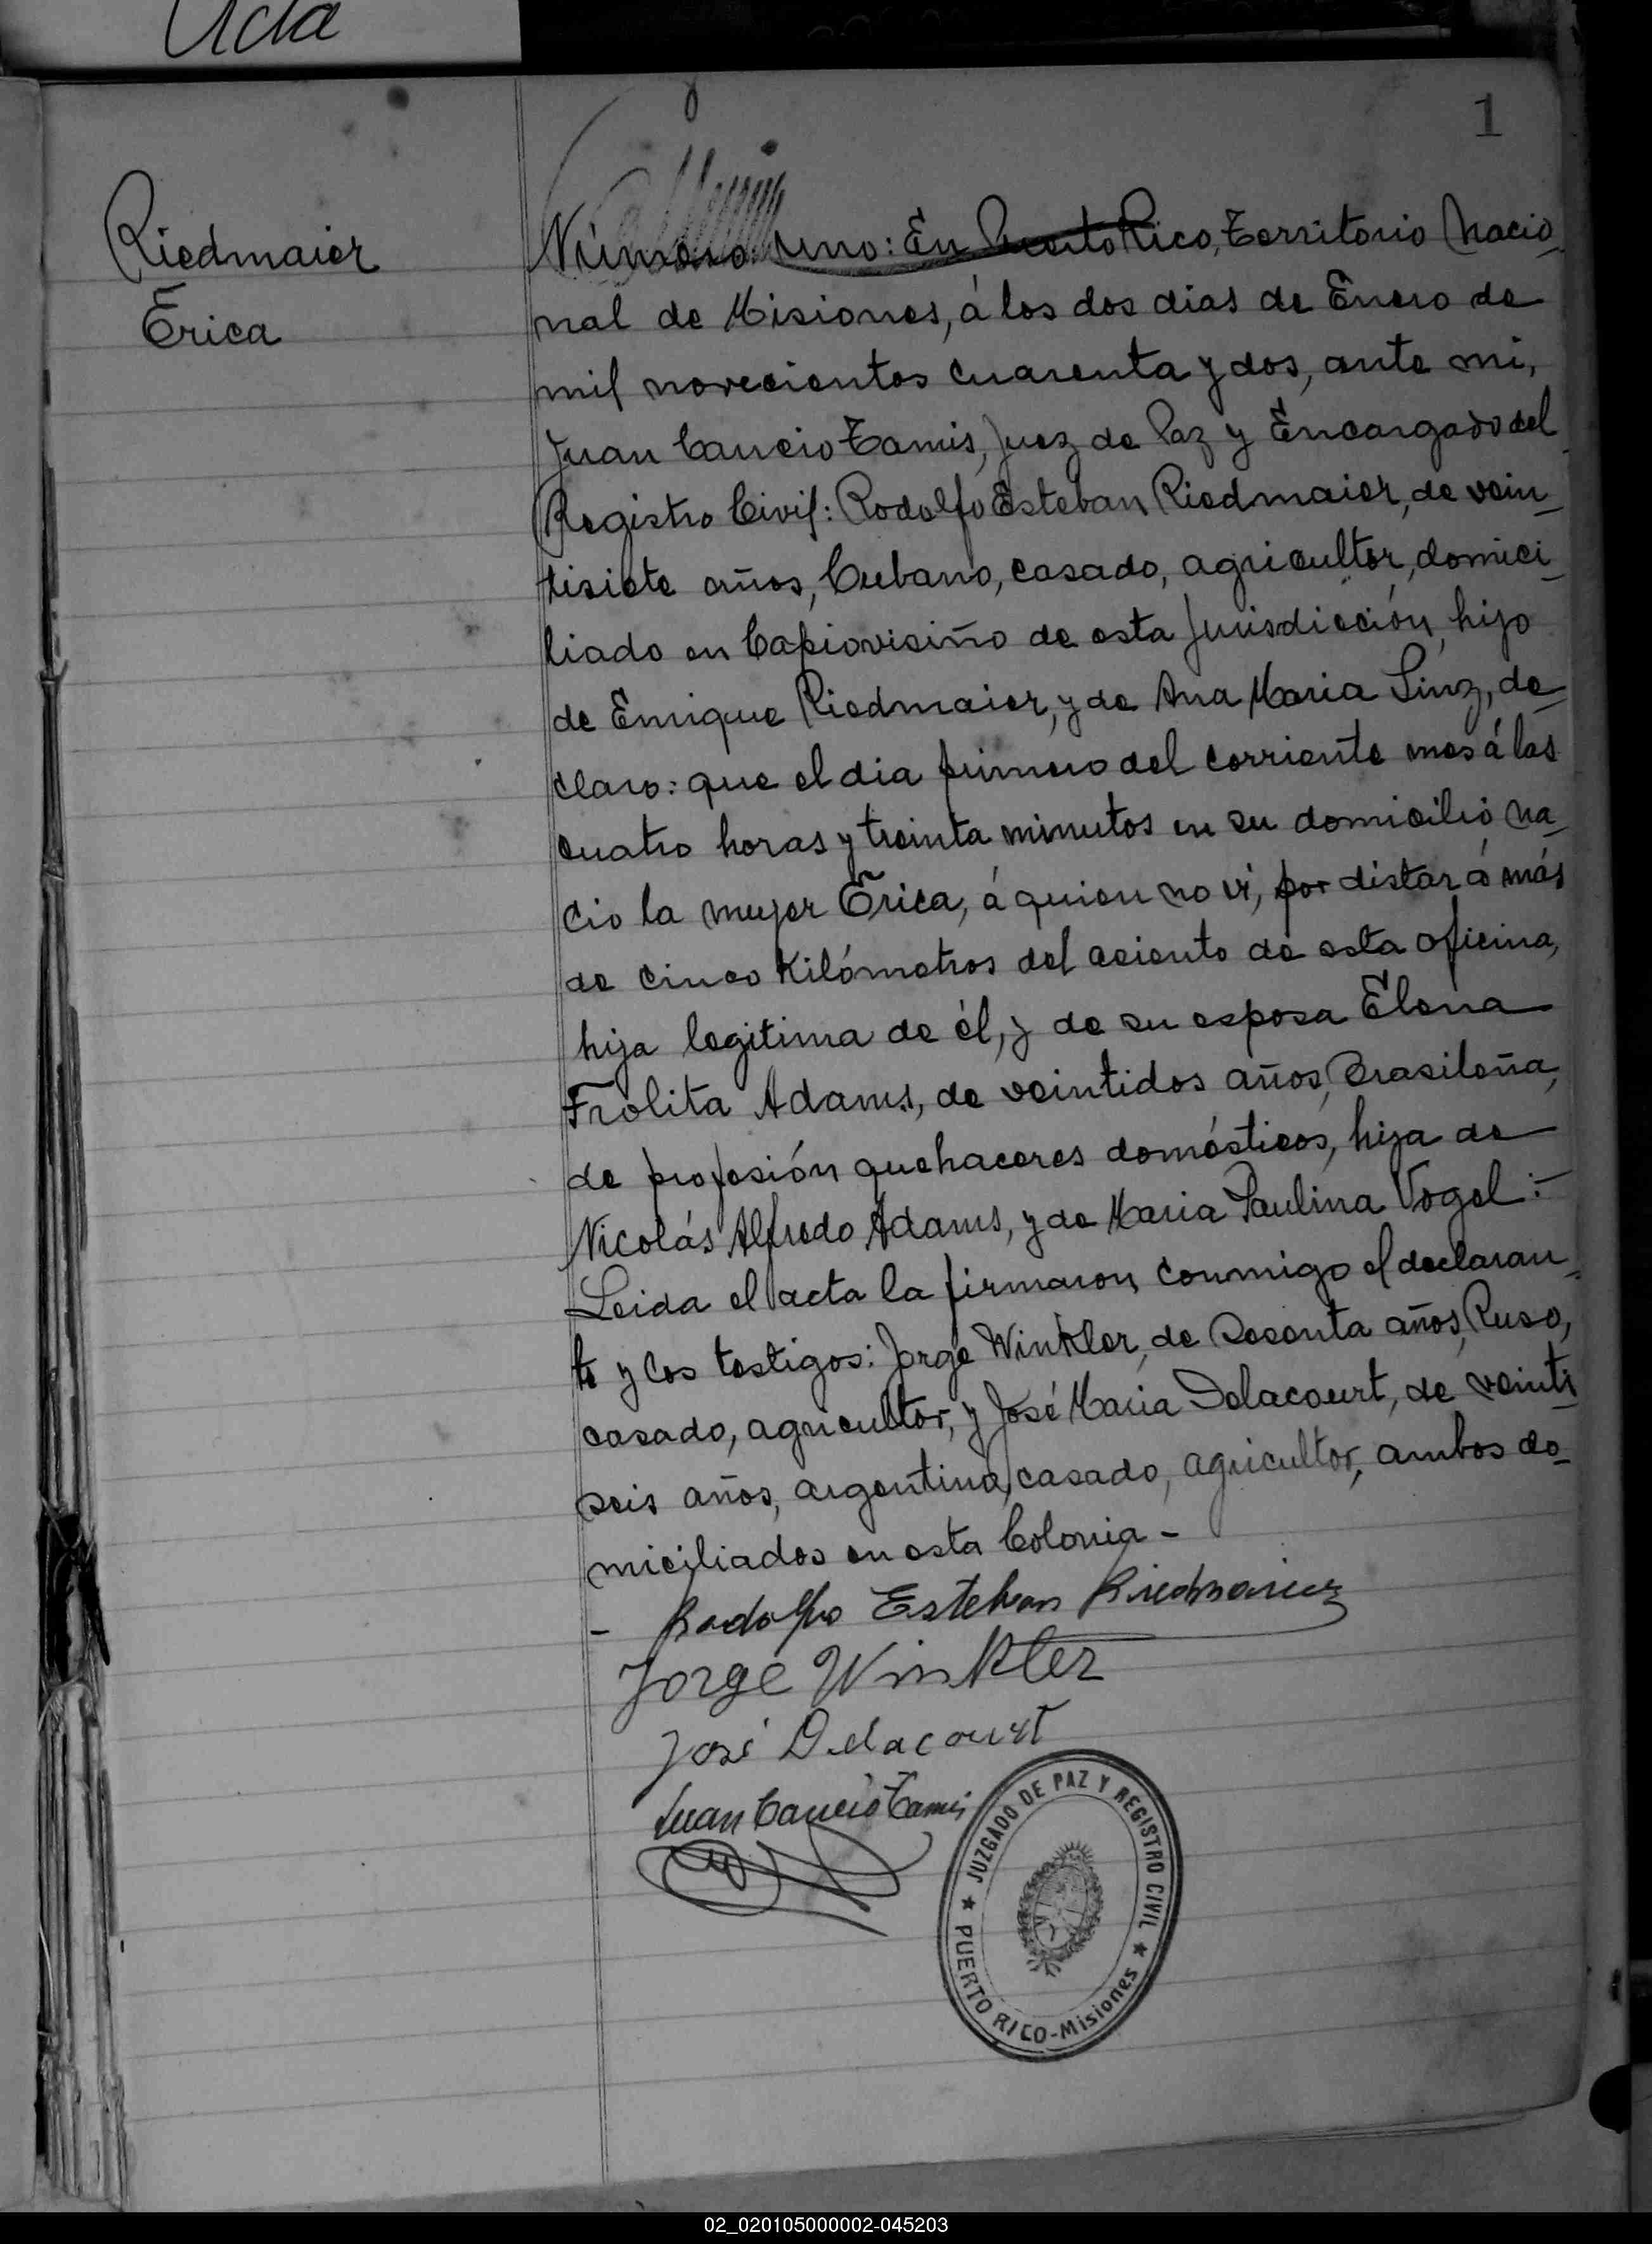 Acta
1
Riedmaier
Erica
Número: uno: En Puerto Rico, Territorio Nacio_
nal de Misiones, á los dos dias de Enero de
mil novecientos cuarenta y dos, ante mi,
Juan Cancio Tamis, Juez de Paz y Encargado del
Registro Civil: Rodolfo Esteban Riedmaier, de vein_
tisiete años, Cubano, casado, agricultor, domici_
liado en Capiovisiño de esta Jurisdicción, hijo
de Enrique Riedmaier, y de Ana Maria Sinz, de_
claro: que el dia primero del corriente mes á las
cuatro horas y treinta minutos en su domicilio na_
cio la mujer Erica, á quien no vi, por distar á más
de cinco Kilómetros del asiento de esta oficina,
hija legitima de él, y de su esposa Elena
Frolita Adams, de veintidos años, Brasileña,
de profesión quehaceres domésticos, hija de
Nicolás Alfredo Adams, y de Maria Paulina Vogel :-
Leida el acta la firmaron conmigo el declaran_
te y los testigos: Jorge Winkler, de Sesenta años, Ruso,
casado, agricultor, y José Maria Delacourt, de veinti_
seis años, argentino, casado, agricultor, ambos do_
miciliados en esta Colonia -
- Rodolfo Esteban Riedmaier
Jorge Winkler
José Delacourt
Juan Cancio Tamis
JUZGADO DE PAZ Y REGISTRO CIVIL
PUERTO RICO-Misiones
02_020105000002-045203